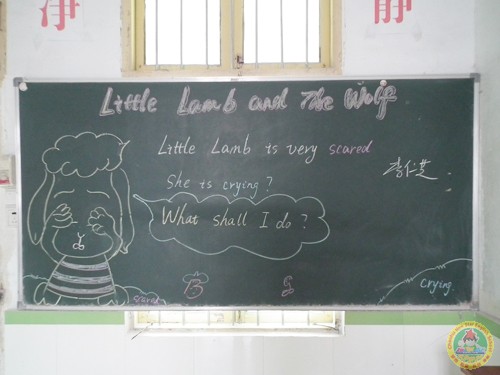 净 静
Little Lamb and The Wolf
Little Lamb is very scared
She is crying?
李仁芝
What shall I do?
B G
scared
crying.